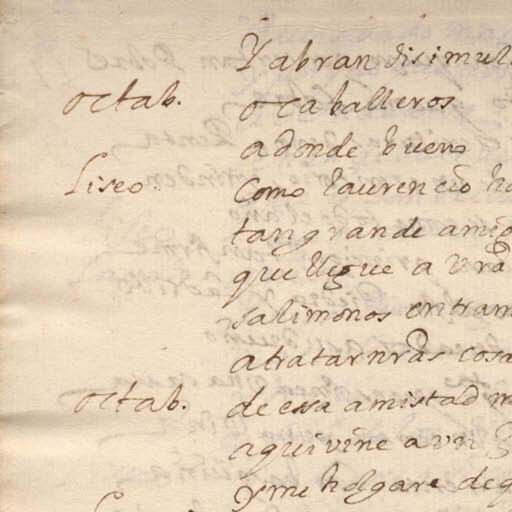 Y abran disimul
octab. o caballeros
adonde bueno
Liseo. Como laurencio ha
tan grande amig
que llegue a vrã
salimonos entram
a tratar nrãs cosa
octab. de essa amistad m
aqui vine a vn
Y me holgare de q